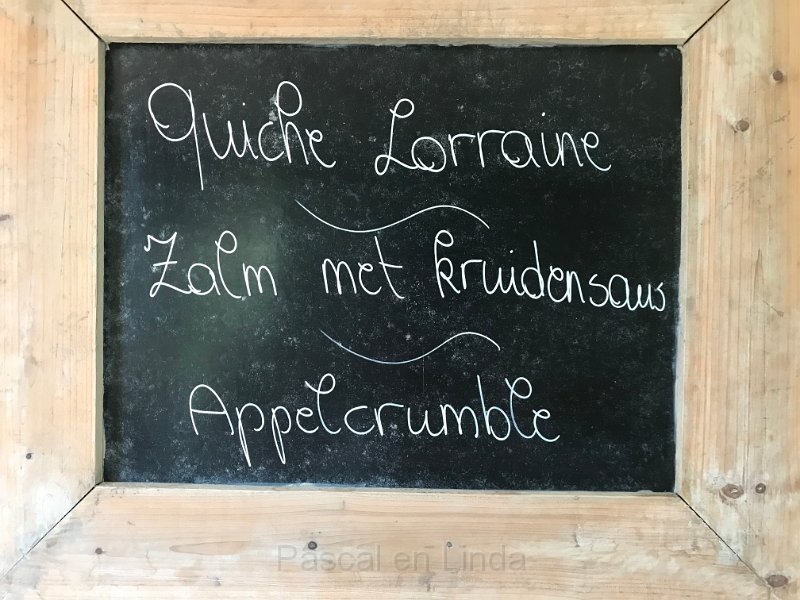 Quiche Lorraine
Zalm met kruidensaus
Appelcrumble
Pascal en Linda